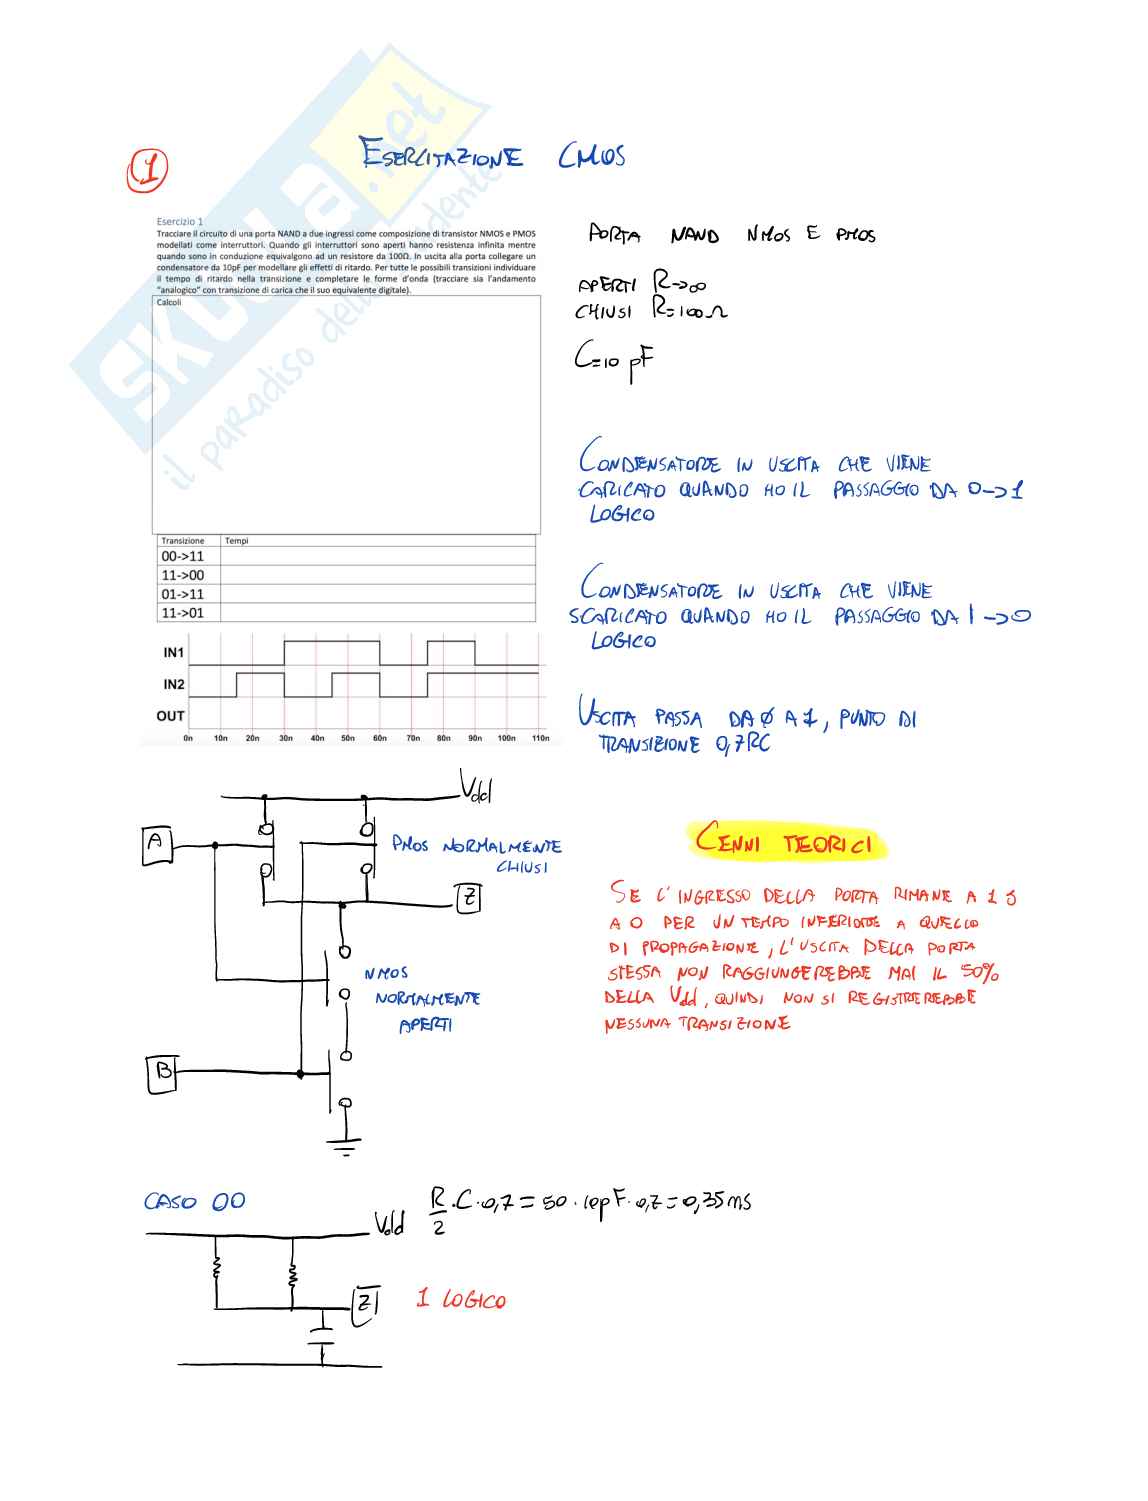 ESERCITAZIONE CMOS
1
SKUOLA.net
il paradiso dello studente
Esercizio 1
Tracciare il circuito di una porta NAND a due ingressi come composizione di transistor NMOS e PMOS
modellati come interruttori. Quando gli interruttori sono aperti hanno resistenza infinita mentre
quando sono in conduzione equivalgono ad un resistore da 100Ω. In uscita alla porta collegare un
condensatore da 10pF per modellare gli effetti di ritardo. Per tutte le possibili transizioni individuare
il tempo di ritardo nella transizione e completare le forme d'onda (tracciare sia l'andamento
"analogico" con transizione di carica che il suo equivalente digitale).
Calcoli
Transizione Tempi
00->11
11->00
01->11
11->01
IN1
IN2
OUT
0n 10n 20n 30n 40n 50n 60n 70n 80n 90n 100n 110n
PORTA NAND NMOS E PMOS
APERTI R->∞
CHIUSI R=100Ω
C=10 pF
CONDENSATORE IN USCITA CHE VIENE
CARICATO QUANDO HO IL PASSAGGIO DA 0->1
LOGICO
CONDENSATORE IN USCITA CHE VIENE
SCARICATO QUANDO HO IL PASSAGGIO DA 1->0
LOGICO
USCITA PASSA DA Ø A 1, PUNTO DI
TRANSIZIONE 0,7RC
Vdd
A
PMOS NORMALMENTE
CHIUSI
Z
NMOS
NORMALMENTE
APERTI
B
CENNI TEORICI
SE L'INGRESSO DELLA PORTA RIMANE A 1 O
A 0 PER UN TEMPO INFERIORE A QUELLO
DI PROPAGAZIONE, L'USCITA DELLA PORTA
STESSA NON RAGGIUNGEREBBE MAI IL 50%
DELLA Vdd, QUINDI NON SI REGISTREREBBE
NESSUNA TRANSIZIONE
CASO 00
Vdd
R/2 · C · 0,7 = 50 · 10pF · 0,7 = 0,35 ns
Z
1 LOGICO